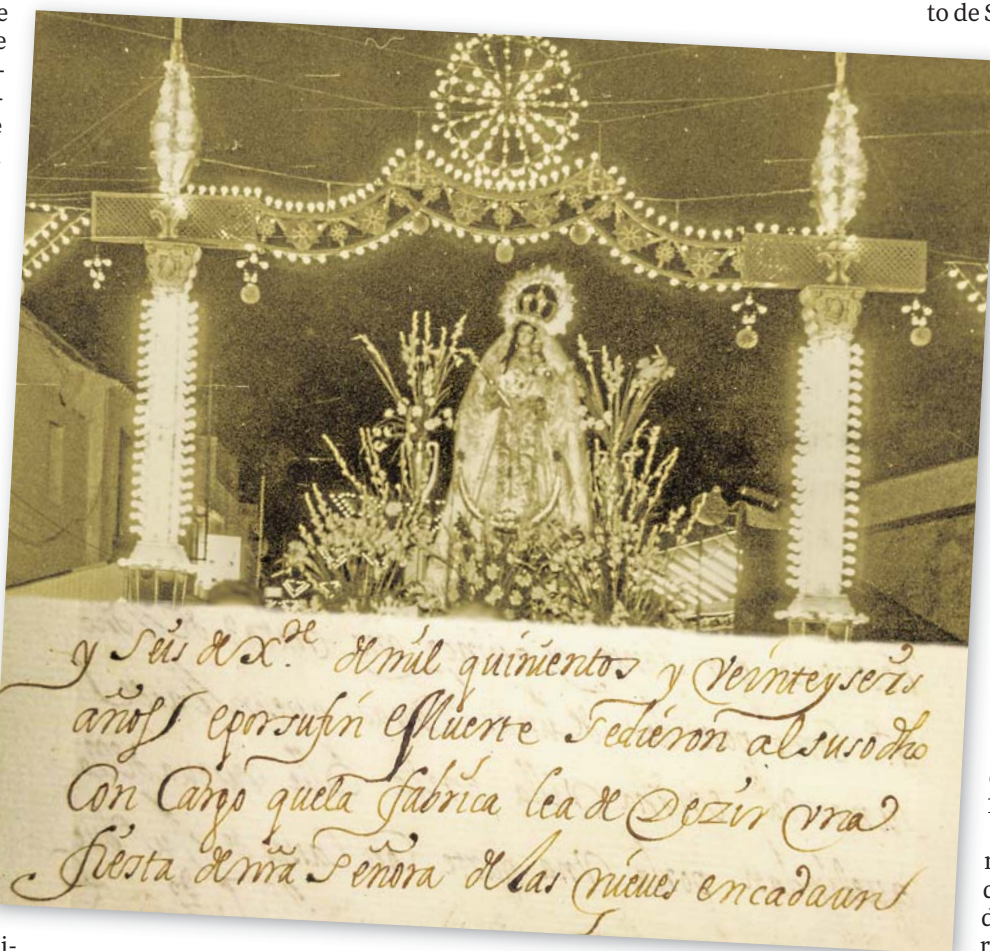 to de S
y seis de X.re de mil quinientos y veinte y seis
años e por su fin e Muerte se dieron al susodho
Con Cargo que la fabrica lea de Dezir vna
fiesta de nra Señora de las nieues en cada un